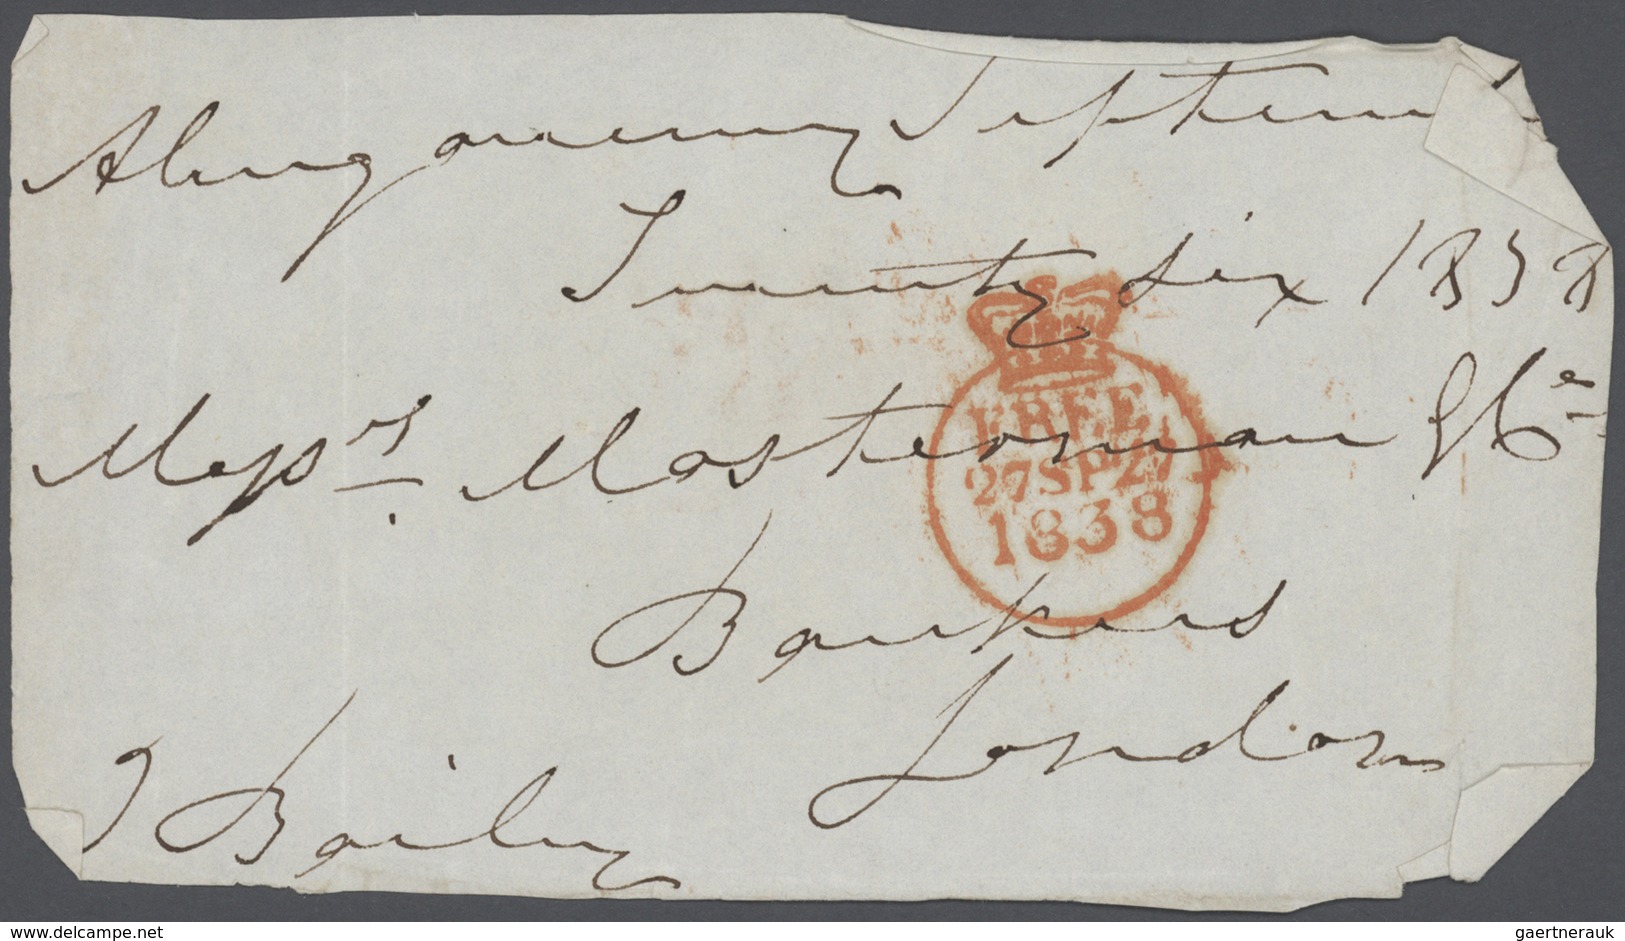 Abergavenny Septem
Twenty six 1838
Messrs Masterman & Co
FREE
27SP27
1838
Bankers
London
J Bailey
www.delcampe.net
gaertnerauk